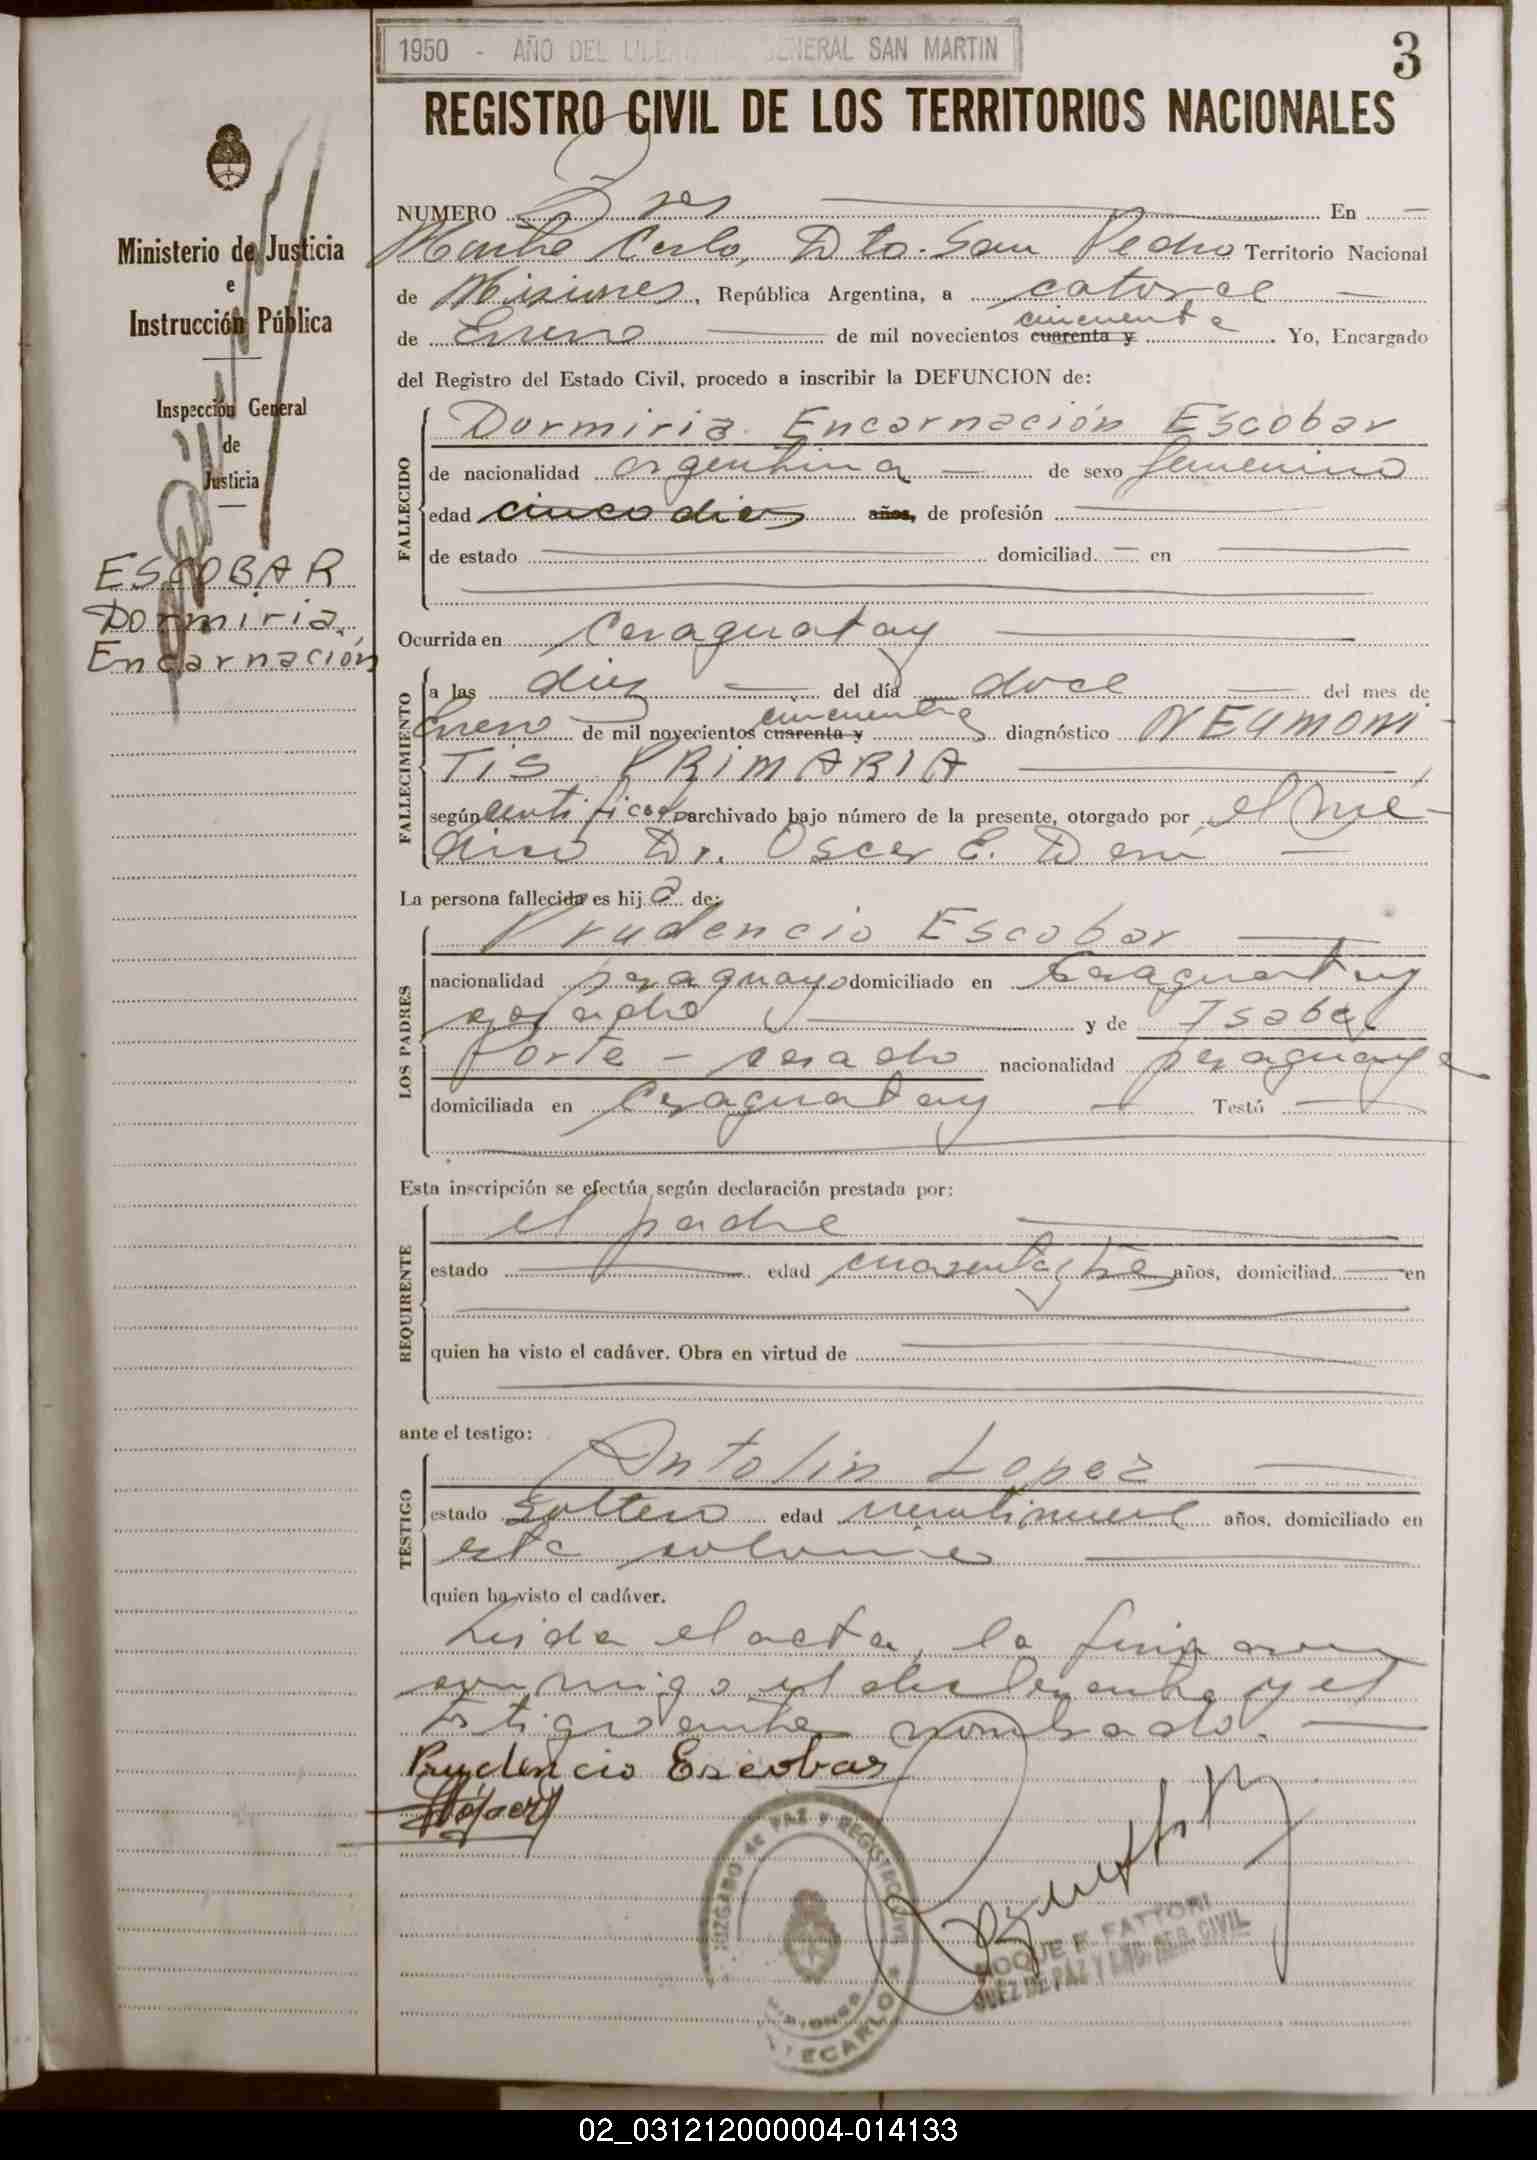 1950 - AÑO DEL GENERAL SAN MARTIN
3
REGISTRO CIVIL DE LOS TERRITORIOS NACIONALES
Ministerio de Justicia
e
Instrucción Pública
Inspección General
de
Justicia
ESCOBAR
Dormiria
Encarnación
NUMERO Tres En
Monte Carlo, Dto. San Pedro Territorio Nacional
de Misiones, República Argentina, a catorce
cincuenta
de Enero de mil novecientos cuarenta y Yo, Encargado
del Registro del Estado Civil, procedo a inscribir la DEFUNCION de:
FALLECIDO
Dormiria Encarnación Escobar
de nacionalidad argentina de sexo femenino
edad cinco dias años, de profesión
de estado domiciliad. en
Ocurrida en Caraguatay
FALLECIMIENTO
a las diez del día doce del mes de
cincuenta
Enero de mil novecientos cuarenta y diagnóstico NEUMONI
TIS PRIMARIA
según certificado archivado bajo número de la presente, otorgado por el mé-
dico Dr. Oscar E.
La persona fallecida es hija de:
LOS PADRES
Prudencio Escobar
nacionalidad paraguayo domiciliado en Caraguatay
y de Isabel
casado nacionalidad paraguaya
domiciliada en Caraguatay Testó
Esta inscripción se efectúa según declaración prestada por:
REQUIRENTE
el padre
estado edad cuarenta y tres años, domiciliad. en
quien ha visto el cadáver. Obra en virtud de
ante el testigo:
TESTIGO
Antolin Lopez
estado soltero edad veintinueve años. domiciliado en
esta colonia
quien ha visto el cadáver.
Leida el acta, la firman
conmigo el declarante y el
testigo antes nombrado.
Prudencio Escobar
JUZGADO de PAZ Y REGISTRO CIVIL
MISIONES
MONTECARLO
ROQUE F. FATTORI
JUEZ DE PAZ Y ENC. REG. CIVIL
02_031212000004-014133